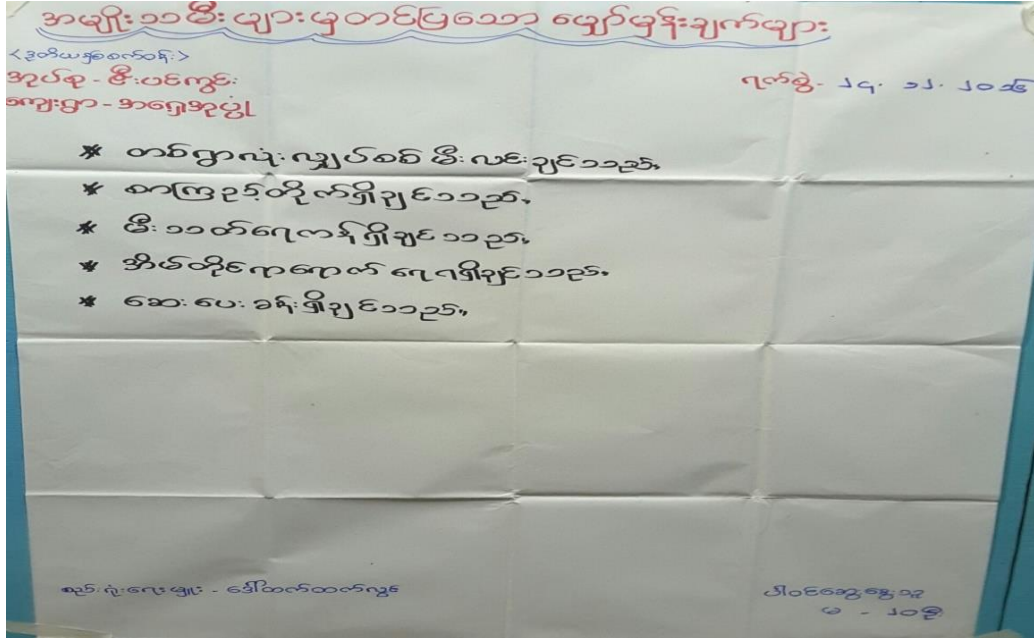 အမျိုးသမီးများမှတင်ပြသော မျှော်မှန်းချက်များ
<ဒုတိယနှစ်စက်ဝန်း>
အုပ်စု - ဇီးပင်ကွင်း
ရက်စွဲ - ၂၄. ၁၂. ၂၀၁၆
ကျေးရွာ - အရှေ့အုပွဲ
* တစ်ရွာလုံးလျှပ်စစ် မီးလင်းချင်သည်။
* စာကြည့်တိုက်ရှိချင်သည်။
* မီးသတ်ရေကန်ရှိချင်သည်။
* အိမ်တိုင်ရာရောက် ရေရရှိချင်သည်။
* ဆေးပေးခန်းရှိချင်သည်။
စည်းရုံးလှုံ့ဆော်သူ - ဒေါ်ထက်ထက်လွင်
ပါဝင်ဆွေးနွေးသူ
မ - ၂၀ ဦး